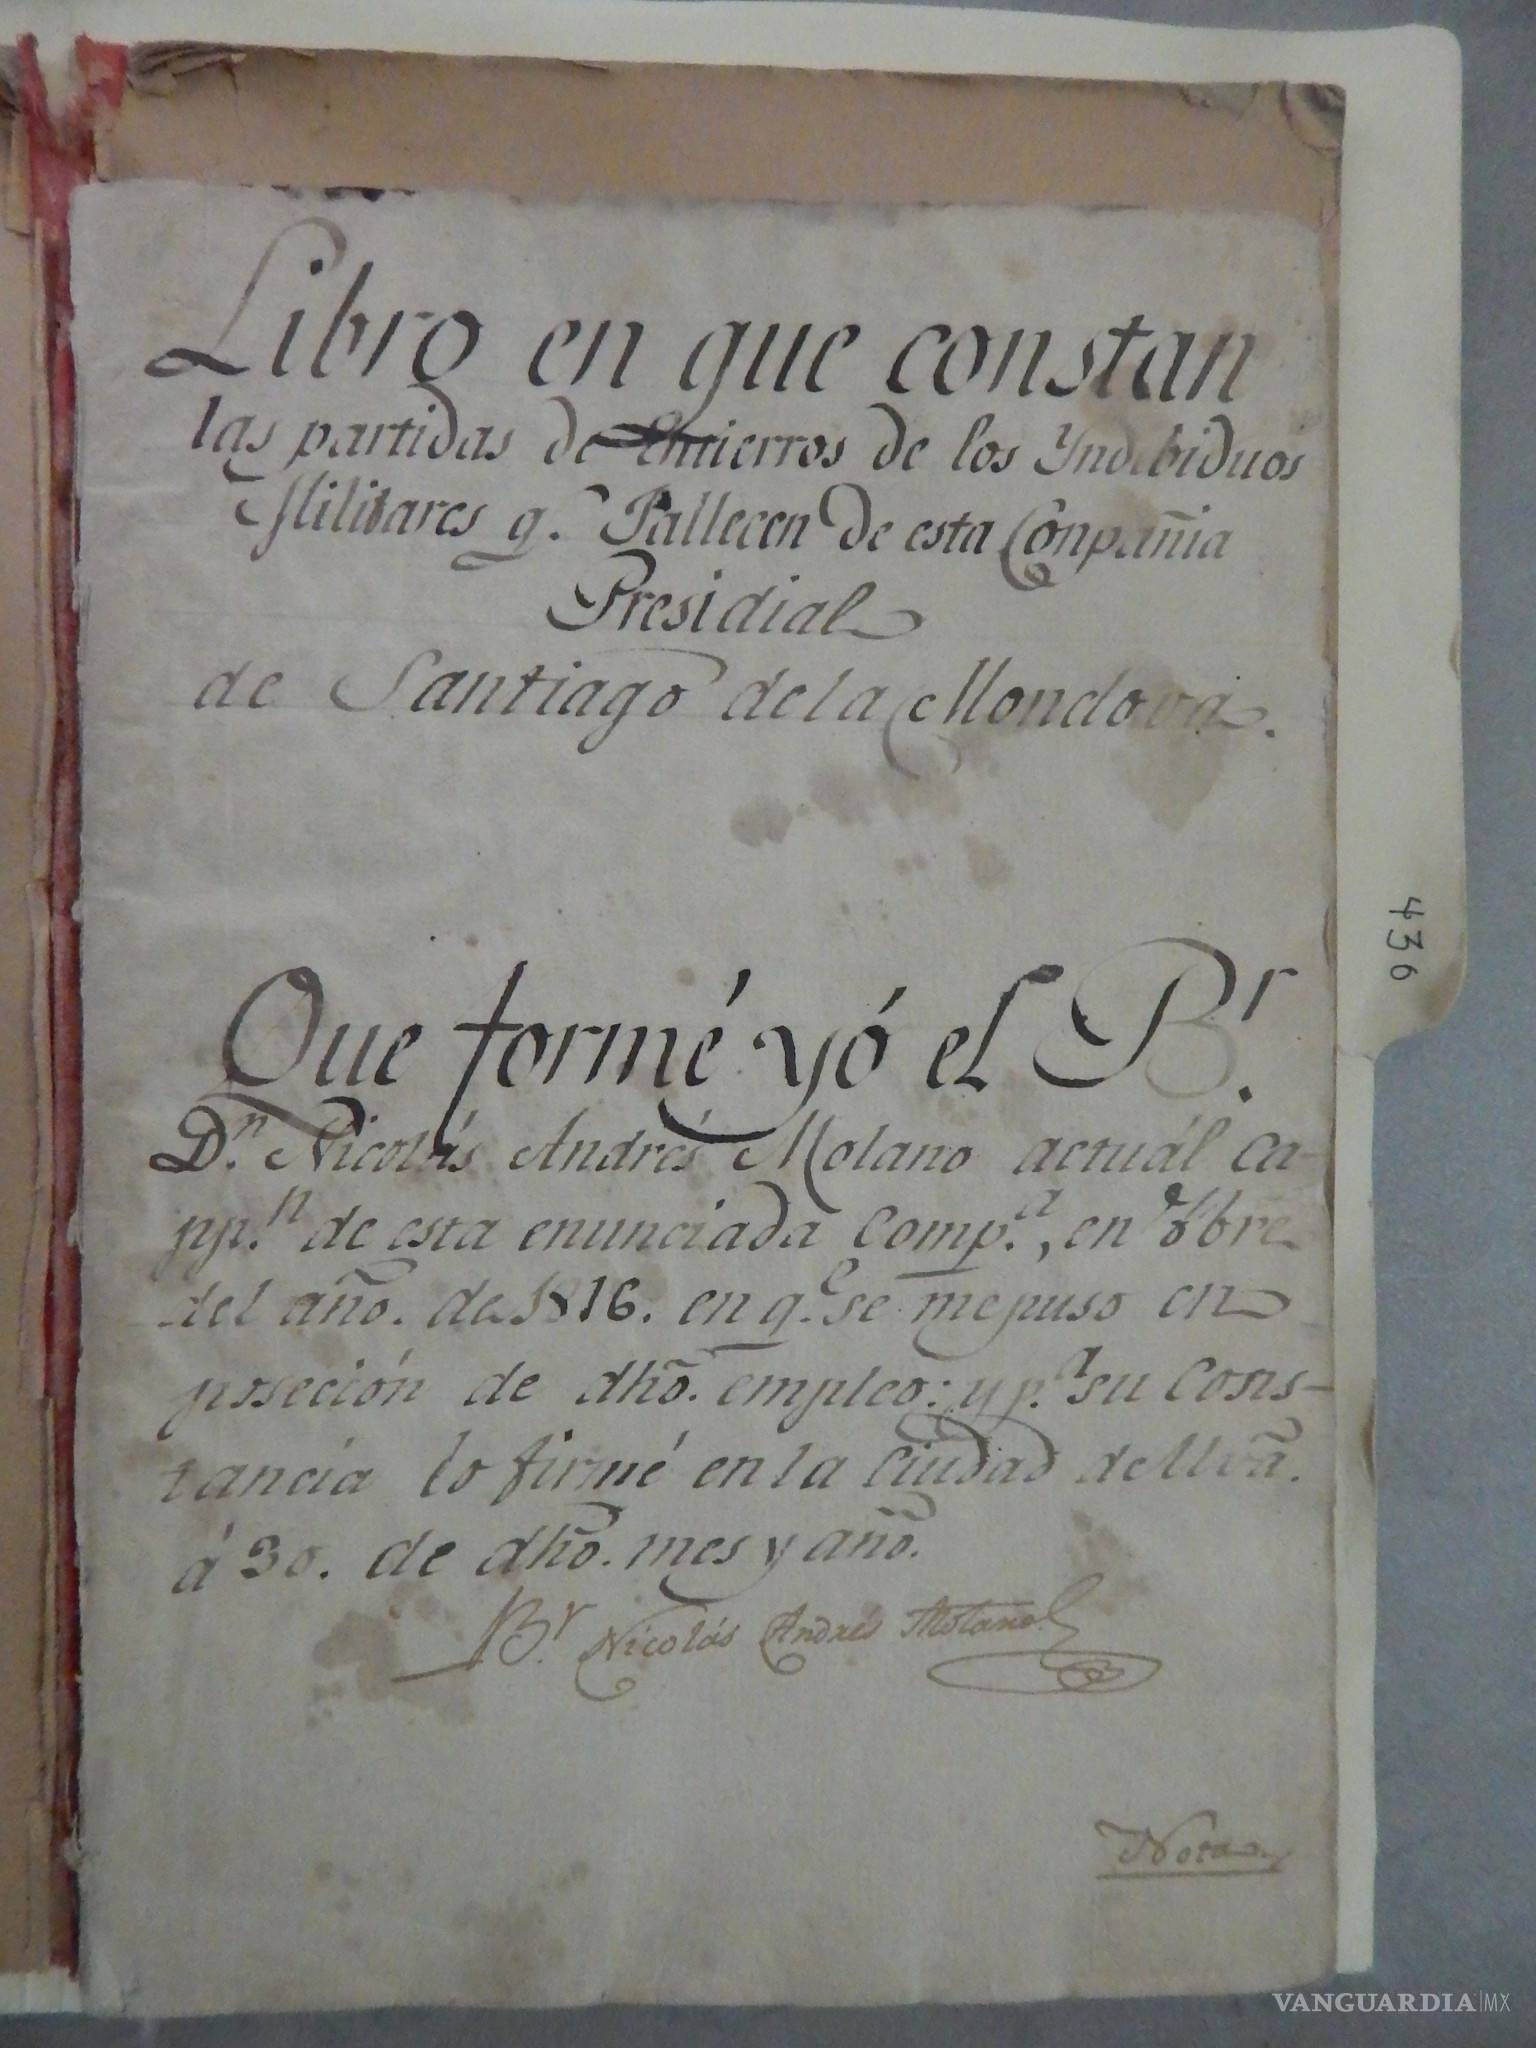 Libro en que constan
las partidas de Entierros de los Yndibiduos
Militares q.e Fallecen de esta Conpañia
Presidial
de Santiago de la Monclova.
Que formé yó el B.r
D.n Nicolás Andrés Molano actuál Ca-
pp.n de esta enunciada Comp.a, en bre
del año. de 1816. en q.e se me puso en
poseción de dhõ. empleo: y p.a su Cons-
tancia lo firmé en la Ciudad de Mvã.
á 30. de dhõ. mes y año.
B.r Nicolás Andrés Molano
Nota
436
VANGUARDIA|MX